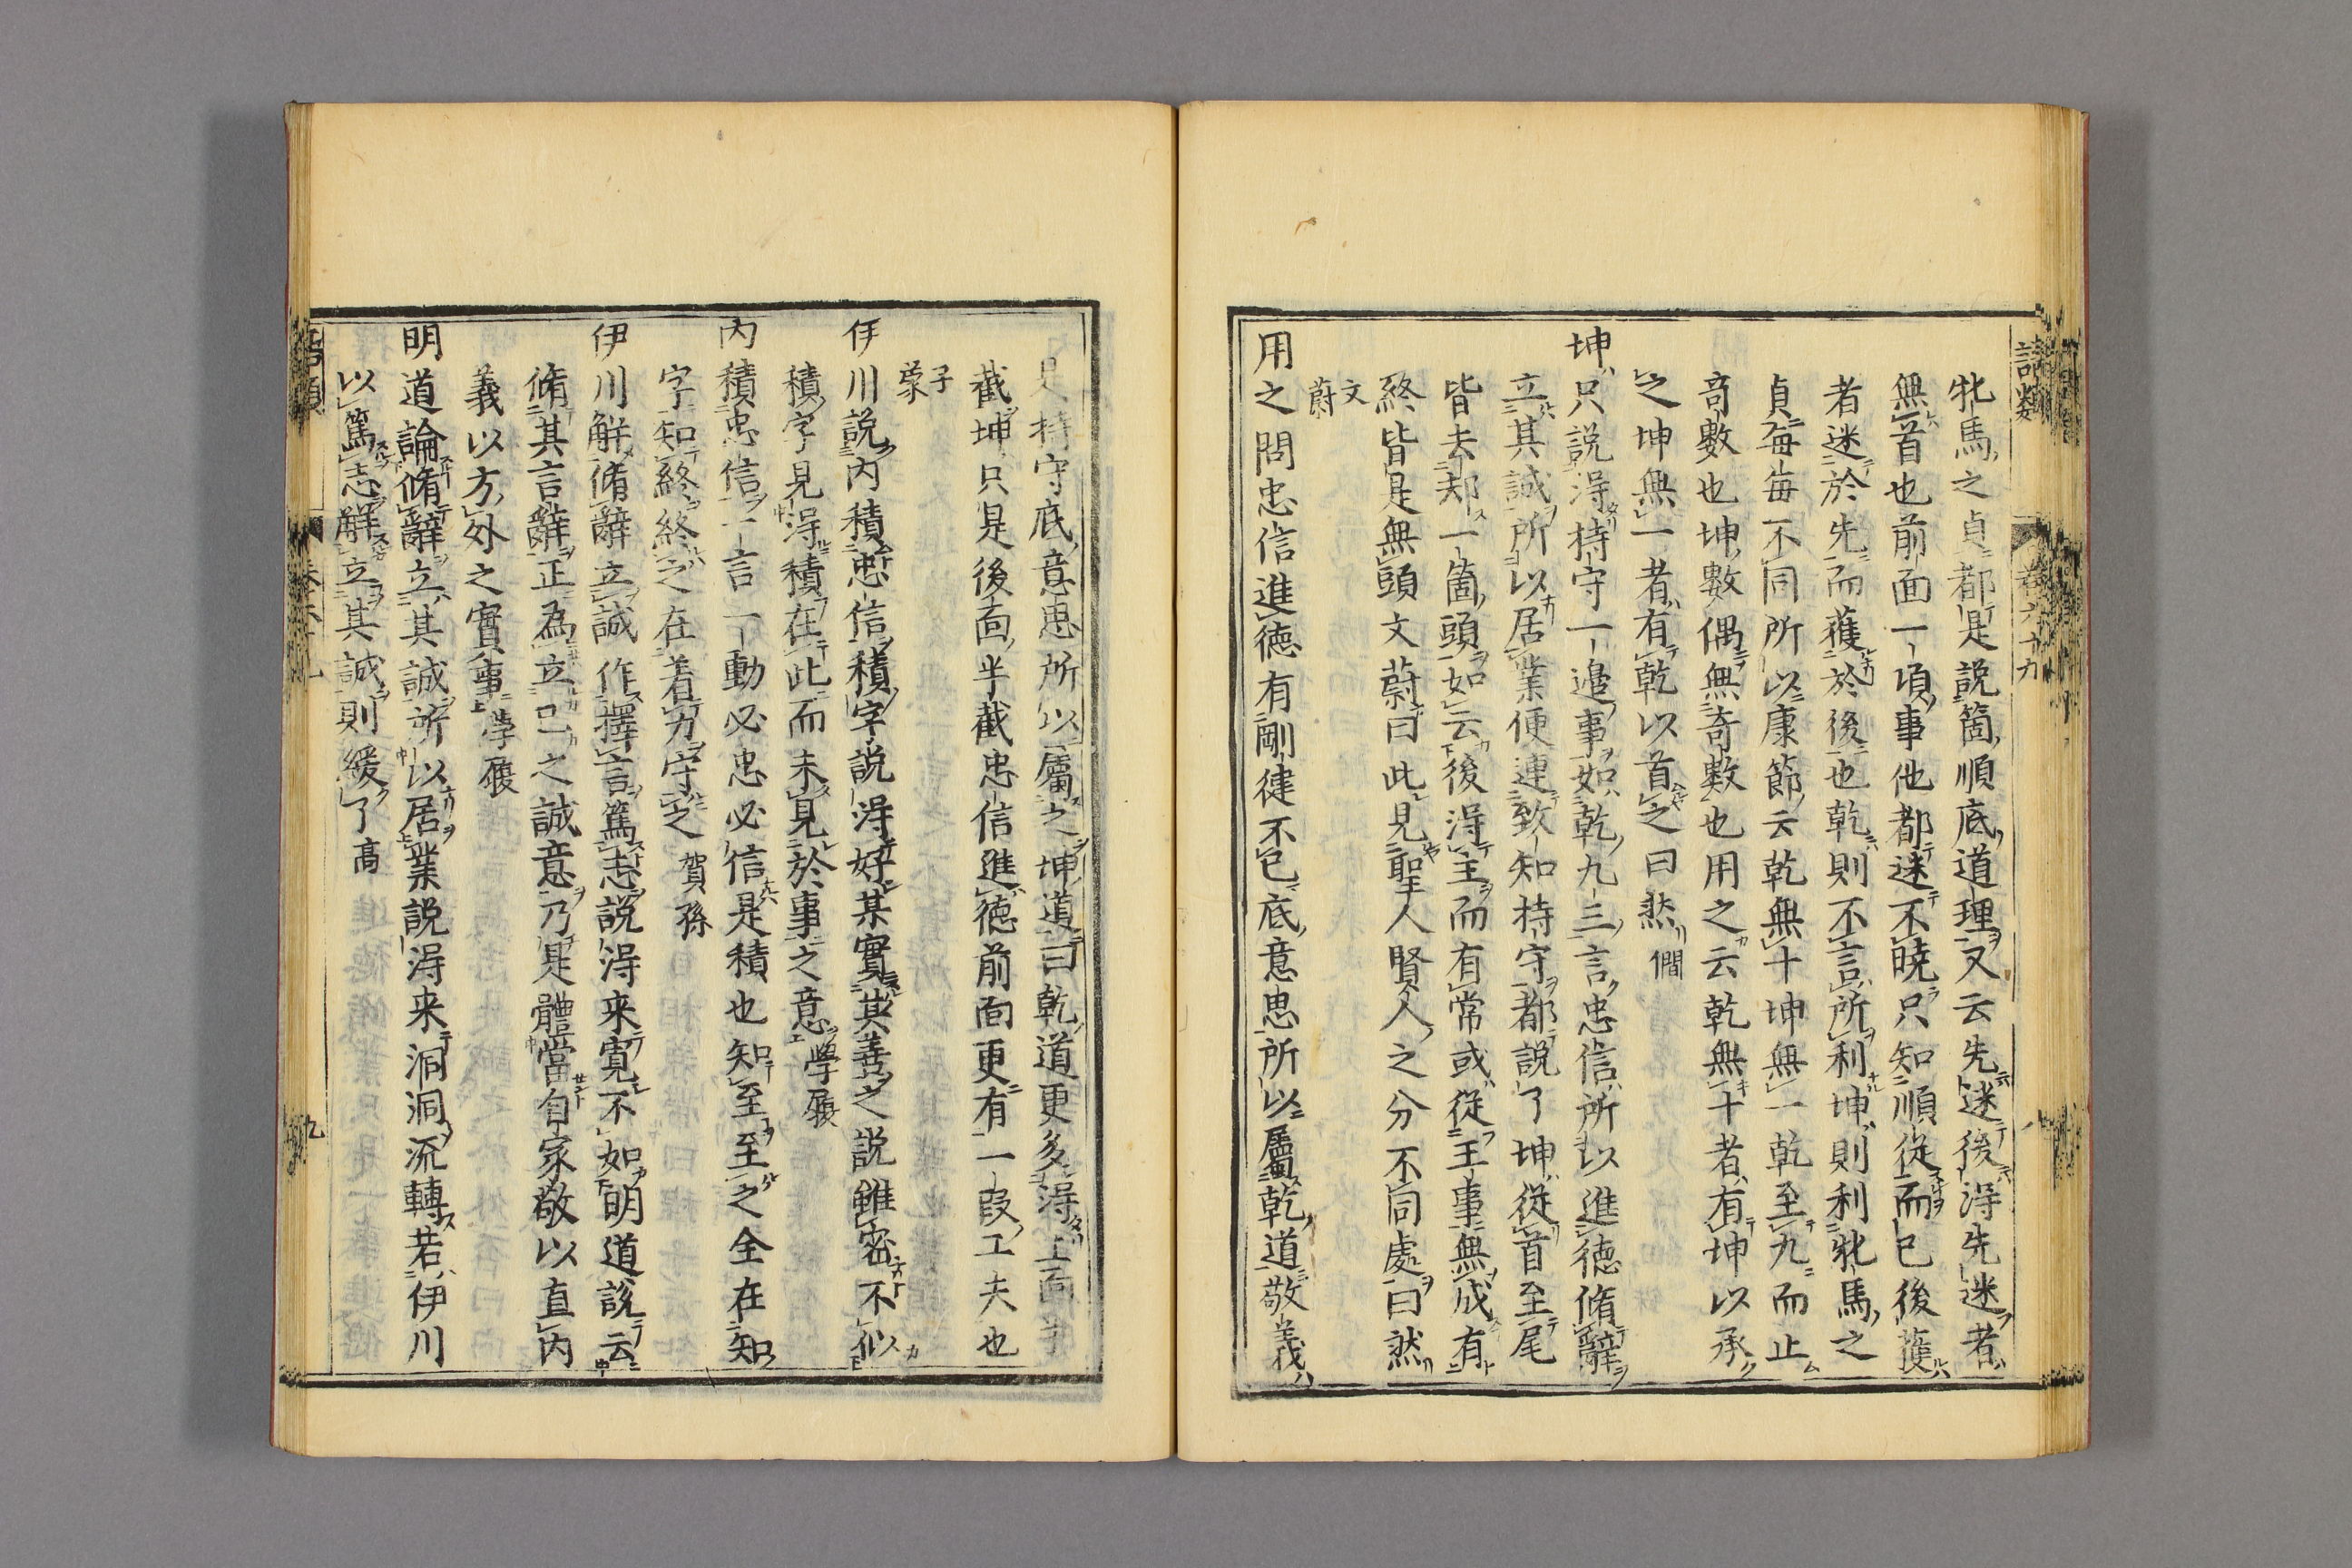 語類 卷六十九
牝馬之貞都是說箇順底道理又云先迷後得先迷者
無首也前面一項事他都迷不曉只知順從而已後獲
者迷於先而獲於後也乾則不言所利坤則利牝馬之
貞每每不同所以康節云乾無十坤無一乾至九而止
竒數也坤數偶無竒數也用之云乾無十者有坤以承
之坤無一者有乾以首之曰然僩
坤只說得持守一邉事如乾九三言忠信所以進德脩辭
立其誠所以居業便連致知持守都說了坤從首至尾
皆去却一箇頭如云後得主而有常或從王事無成有
終皆是無頭文蔚曰此見聖人賢人之分不同處曰然
文蔚
用之問忠信進德有剛健不已底意思所以屬乾道敬義
是持守底意思所以屬之坤道曰乾道更多得上面半
截坤只是後面半截忠信進德前面更有一段工夫也
子蒙
伊川說內積忠信積字說得好某實其善之說雖密不似
積字見得積在此而未見於事之意學履
內積忠信一言一動必忠必信是積也知至至之全在知
字知終終之在着力守之賀孫
伊川解脩辭立誠作擇言篤志說得来寛不如明道說云
脩其言辭正為立己之誠意乃是體當自家敬以直內
義以方外之實事學履
明道論脩辭立其誠所以居業說得来洞洞流轉若伊川
以篤志解立其誠則緩了高
語類 卷六十九 九